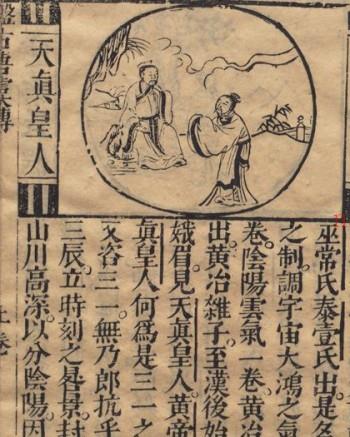 天眞皇人
巫常氏泰壹氏出是名
之制調宇宙大鴻之氣
卷。陰陽雲氣一卷黃冶
出。黃冶雜子。至漢後始
娥眉見天眞皇人。黃帝
眞皇人何爲是三一之
又咨三一。無乃郎抗乎
三辰。立時刻之晷景。封
山川高深。以分陰陽。因
盤古唐虞傳
上卷